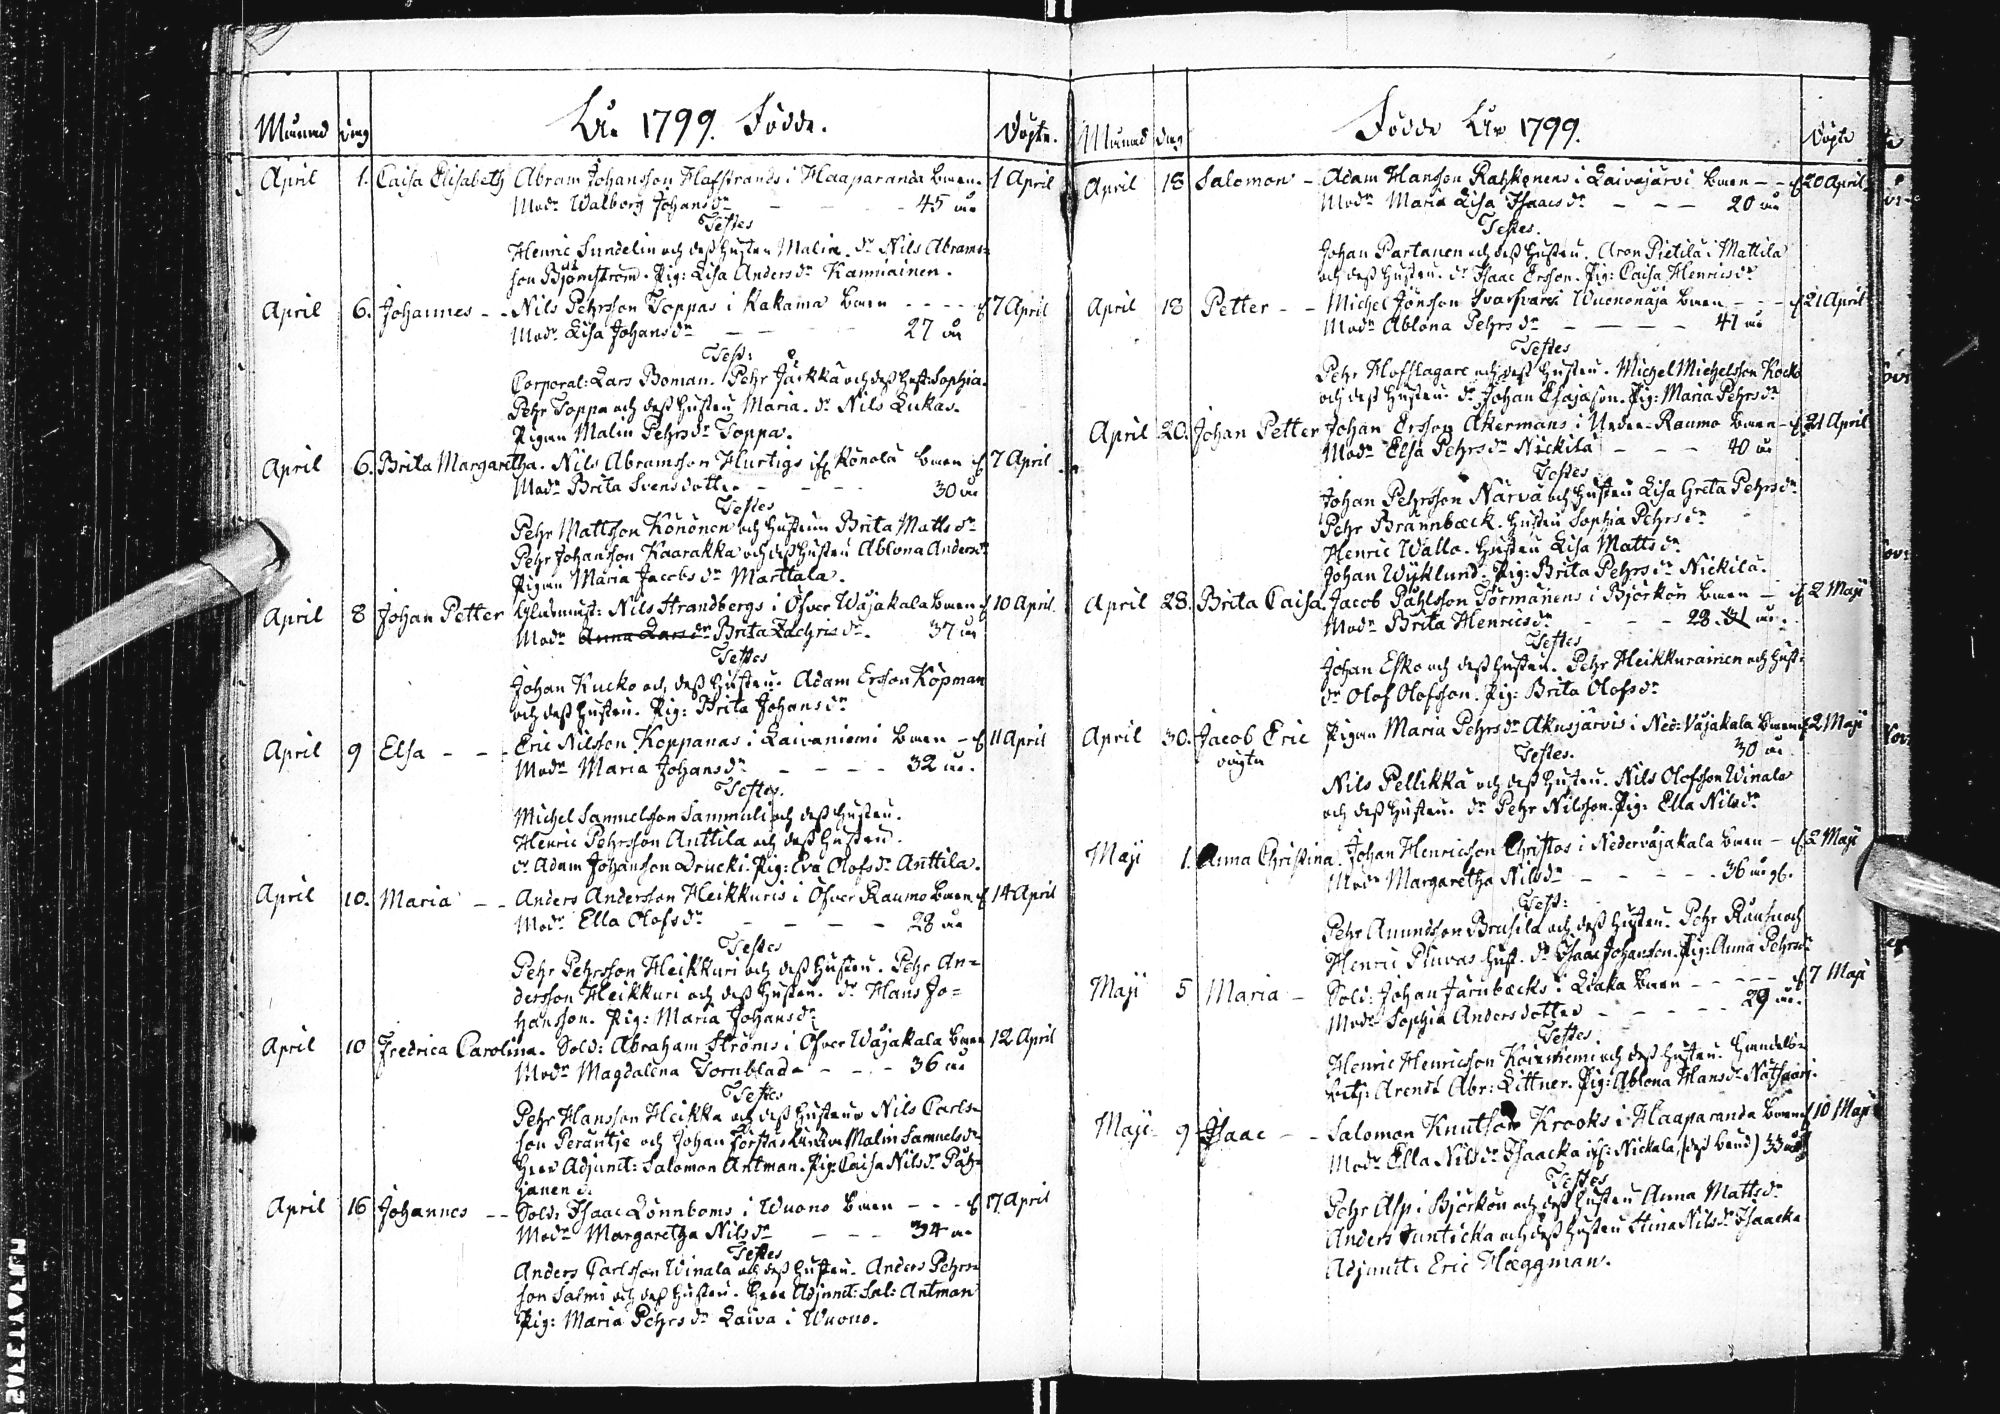 Månad dag År 1799. Födde. Döpte.
April 1. Caisa Elisabeth Abram Johansson Hafstrands i Haaparanda barn. 1 April
Modr Walborg Johansdr - - - 45 år
Testes
Henric Sundelin och dess hustru Malin. dr Nils Abrams=
son Björnström. Pig: Lisa Andersdr Kamiainen.
April 6. Johannes - - Nils Pehrsson Toppas i Kakama barn - - - - 7 April
Modr Lisa Johansdr - - - 27 år
Test:
Corporal: Lars Boman. Pehr Jäckkä och dess hust: Sophia.
Pehr Toppa och dess hustru Maria. dr Nils Lukas.
Pigan Malin Pehrsdr Toppa.
April 6. Brita Margaretha. Nils Abramsson Hurtigs if Könölä barn 7 April
Modr Brita Svensdotter - - - 30 år
Testes
Pehr Mattsson Könönen och hustrun Brita Mattsdr
Pehr Johansson Kaarakka och dess hustru Ablona Andersdr
Pigan Maria Jacobsdr Marttala.
April 8 Johan Petter Glasmäst: Nils Strandbergs i Ofver Wåjakala barn 10 April
Modr Anna Larsdr Brita Zachrisdr. 37 år
Testes
Johan Kucko och dess hustru. Adam Ersson Köpman
och dess hustru. Pig: Brita Johansdr
April 9 Elsa - - - Eric Nilsson Koppanas i Laivaniemi barn - 11 April
Modr Maria Johansdr - - - - 32 år.
Testes.
Michel Samuelsson Sammuli och dess hustru.
Henric Pehrsson Anttila och dess hustru.
dr Adam Johansson Drucki. Pig: Eva Olofsdr Anttila.
April 10. Maria - - Anders Andersson Heikkuris i Ofver Raumo barn 14 April
Modr Ella Olofsdr - - - - 28 år
Testes
Pehr Pehrsson Heikkuri och dess hustru. Pehr An=
dersson Heikkuri och dess hustru. dr Hans Jo=
hansson. Pig: Maria Johansdr
April 10 Fredrica Carolina. Sold: Abraham Ströms i Ofver Wåjakala barn 12 April
Modr Magdalena Tornblad - - - 36 år
Testes
Pehr Hansson Heikka och dess hustru Nils Carls=
son Peräntje och Johan Malin Samuelsdr
Herr Adjunct: Salomon Antman. Pig: Caisa Nilsdr Påh=
janen
April 16 Johannes - - Sold: Isaac Lönnboms i Wuono barn - - - 17 April
Modr Margaretha Nilsdr - - - 34 år
Testes
Anders Carlsson Winala och dess hustru. Anders Pehrs=
son Salmi och dess hustru. Herr Adjunct: Sal: Antman
Pig: Maria Pehrsdr Laiva i Wuono.
Månad dag Födde År 1799. Döpte
April 18 Salomon - Adam Hansson Rahkonens i Laivajärvi barn - - 20 April
Modr Maria Lisa Isaacsdr - - - 20 år
Testes.
Johan Partanen och dess hustru. Aron Pietilä i Mattila
och dess hustru. dr Isaac Ersson. Pig: Caisa Henricsdr
April 18 Petter - - Michel Jönsson Svarsvars i Wuononåja barn - - - 21 April
Modr Ablona Pehrsdr - - - - 41 år
Testes
Pehr Hofslagare och dess hustru. Michel Michelsson Kock
och dess hustru. dr Johan Esajason. Pig: Maria Pehrsdr
April 20. Johan Petter Johan Ersson Åkermans i Neder-Raumo barn - 21 April
Modr Elsa Pehrsdr Nickilä - - - 40 år
Testes
Johan Pehrsson Närvä och hustru Lisa Greta Pehrsdr
Pehr Brännbäck. hustru Sophia Pehrsdr
Henric Wallo. hustru Lisa Mattsdr
Johan Wijklund. Pig: Brita Pehrsdr Nickilä.
April 28. Brita Caisa. Jacob Påhlsson Törmänens i Björkön barn - 2 Maji
Modr Brita Henricsdr - - - 28. 31 år.
Testes
Johan Esko och dess hustru. Pehr Heikkurainen och hust:
dr Olof Olofsson. Pig: Brita Olofsdr
April 30. Jacob Eric Pigan Maria Pehrsdr Akusjärvis i Ned: Våjakala barn 2 Maji
oägta Testes. 30 år
Nils Pellikka och dess hustru. Nils Olofsson Winala
och dess hustru. dr Pehr Nilsson. Pig: Ella Nilsdr
Maji 1. Anna Christina. Johan Henricsson Christos i Nedervåjakala barn - 2 Maji
Modr Margaretha Nilsdr - - - - - 36 år
Test:
Pehr Amundsson Brusila och dess hustru. Pehr Rautu och
Henric Pluvas hust. dr Isaac Johansson. Pig: Anna Pehrsdr
Maji 5 Maria - Sold: Johan Järnbäcks i Liaka barn - - - - 7 Maji
Modr Sophia Andersdotter - - - - - 29 år.
Testes.
Henric Henricsson Koivuniemi och dess hustru. Handels=
betj: Arendt Abr: Littner. Pig: Ablona Hansdr
Maji 9 Isaac - - Salomon Knutson Krooks i Haaparanda barn 10 Maji
Modr Ella Nilsdr Isaacka if: Nickala, 33 år
Testes
Pehr Alp i Björkön och dess hustru Anna Mattsdr
Anders Junticka och dess hustru Stina Nilsdr Isaacka
Adjunct: Eric Hæggman.